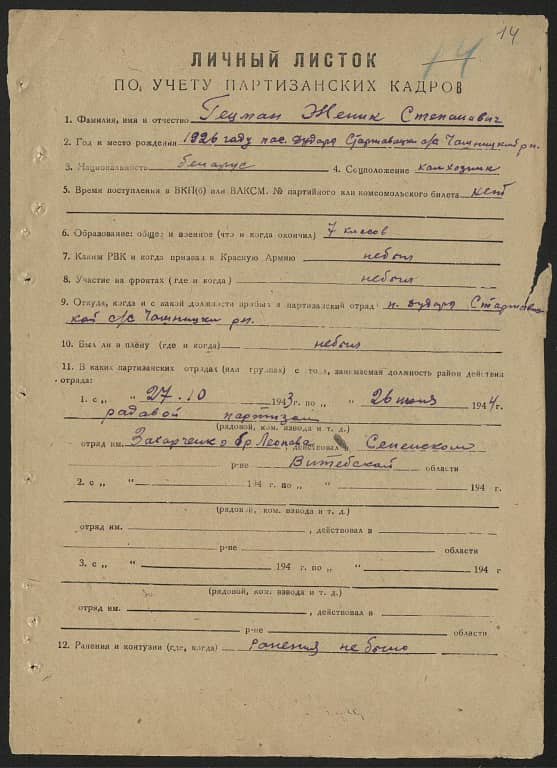 14
14
ЛИЧНЫЙ ЛИСТОК
ПО УЧЕТУ ПАРТИЗАНСКИХ КАДРОВ
1. Фамилия, имя и отчество Гецман Женик Степанавич
2. Год и место рождения 1926 году пос. Будара с/с Чашницкий рн.
3. Национальность беларус 4. Соцположение калхозник
5. Время поступления в ВКП(б) или ВЛКСМ, № партийного или комсомольского билета нет
6. Образование: общее и военное (что и когда окончил) 7 класов
7. Каким РВК и когда призван в Красную Армию небыл
8. Участие на фронтах (где и когда) небыл
9. Откуда, когда и с какой должности прибыл в партизанский отряд п. Будара
кой с/с Чашницки рн.
10. Был ли в плену (где и когда) небыл
11. В каких партизанских отрядах (или группах) с какого времени, занимаемая должность район действия
отряда:
1. с „ 27.10 1943 г. по „ 26 июня 1944 г.
радавой партизан
(рядовой, ком. взвода и т. д.)
отряд им. Захарченко бр Леонова, действовал в Сененском
р-не Витебской области
2. с „ “ 194 г. по „ “ 194 г.
(рядовой, ком. взвода и т. д.)
отряд им. , действовал в
р-не области
3. с „ “ 194 г. по „ “ 194 г
(рядовой, ком. взвода и т. д.)
отряд им. , действовал в
р-не области
12. Ранения и контузии (где, когда) ранения не было